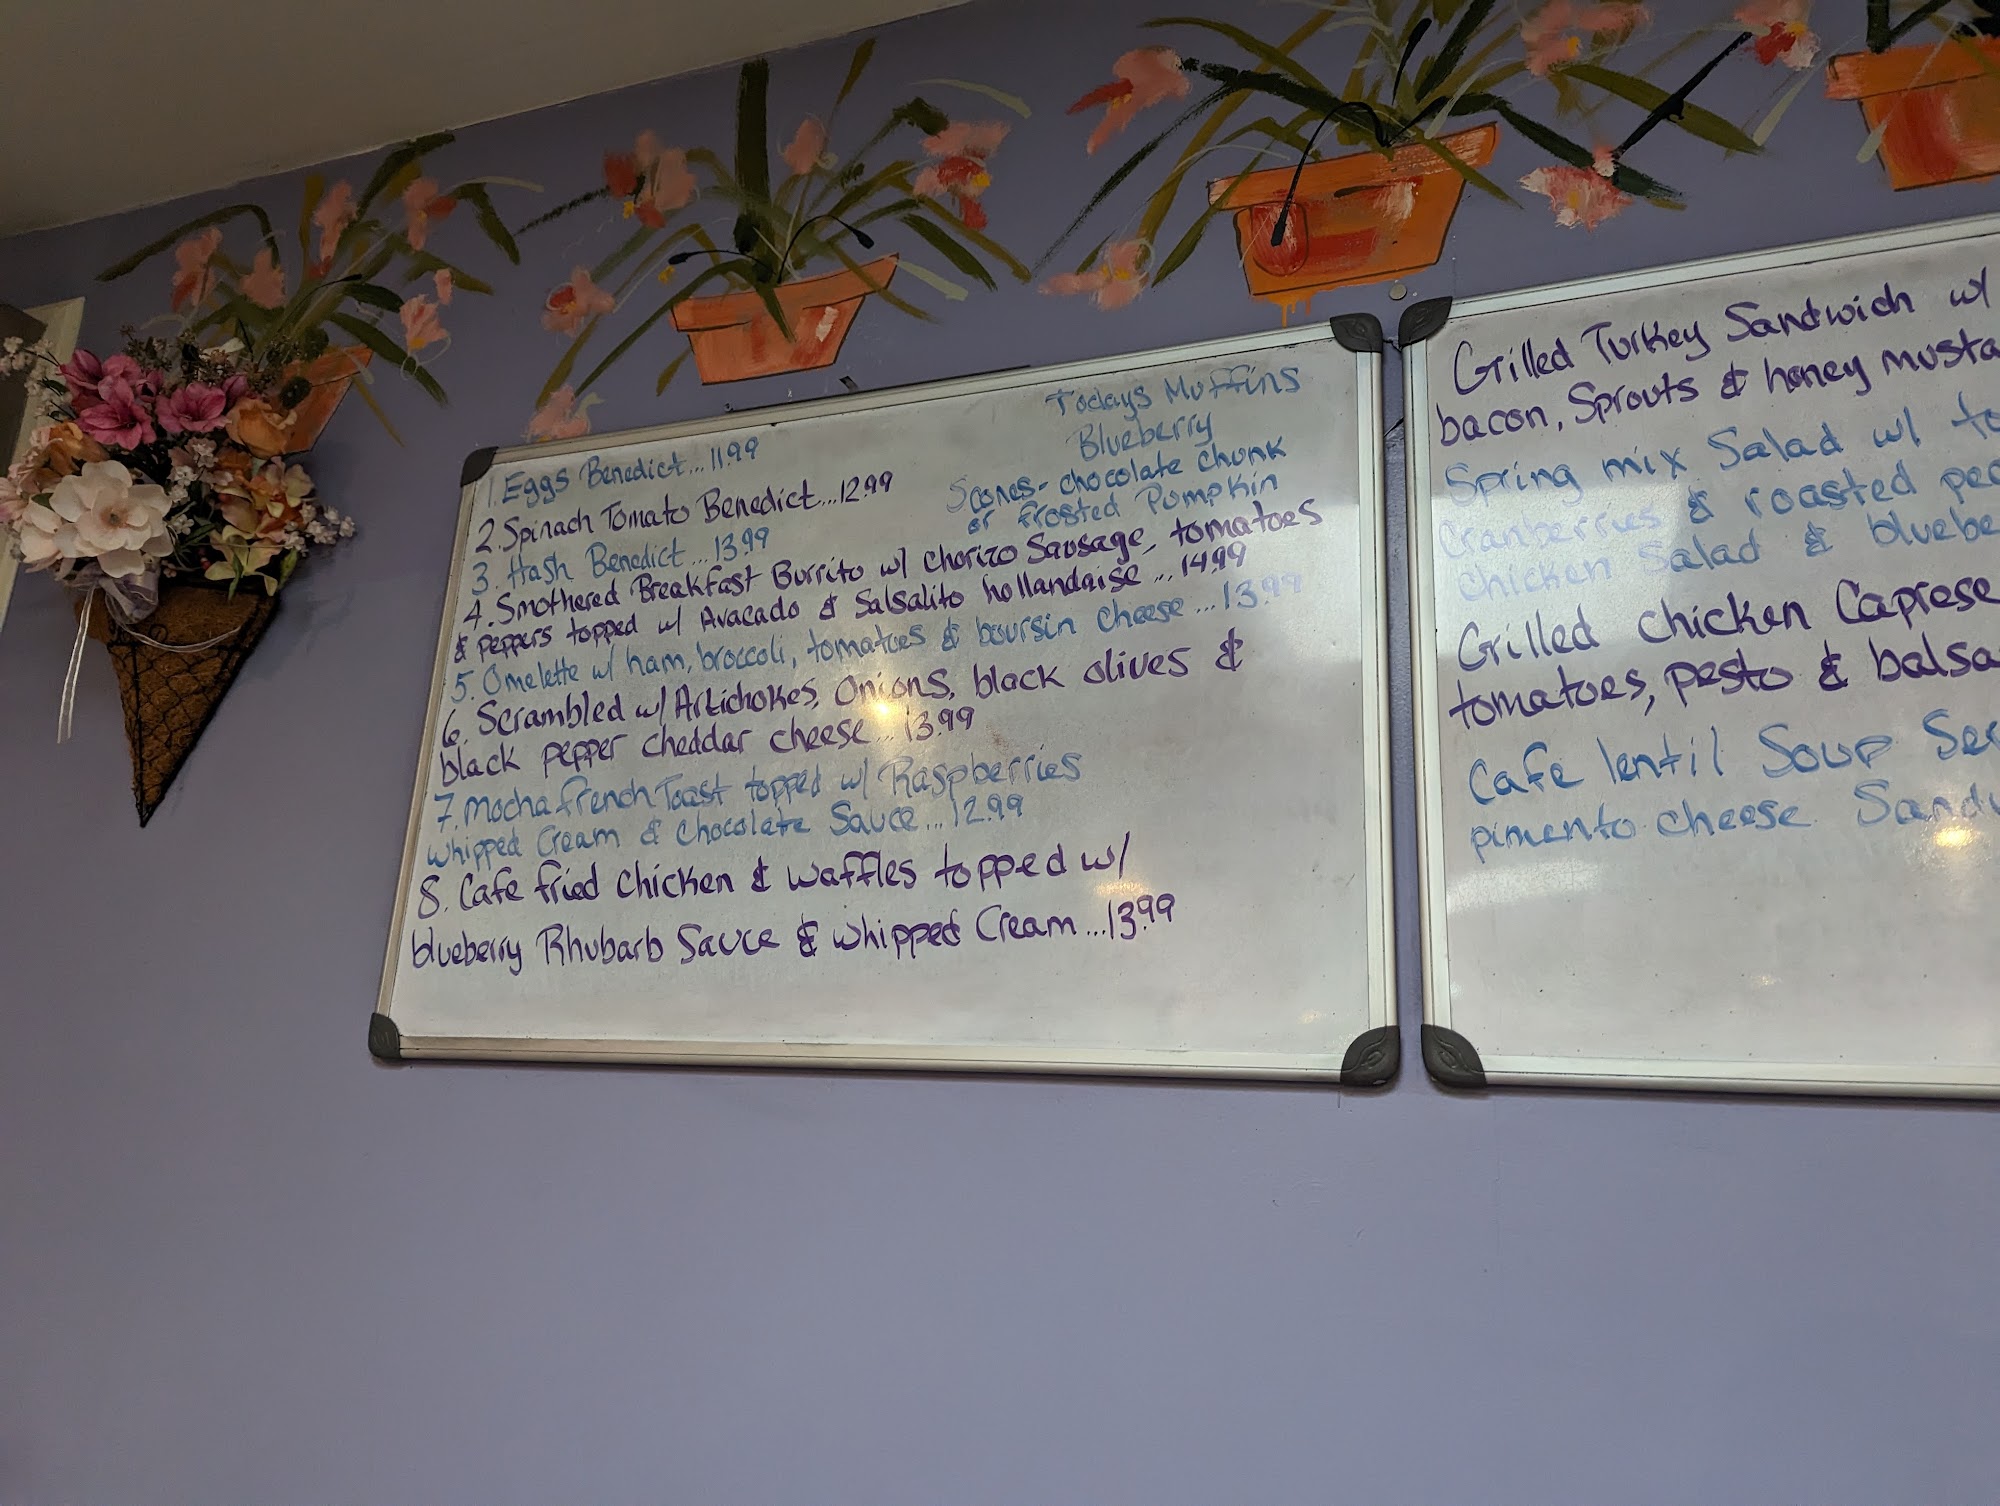 Todays Muffins
Blueberry
Scones - chocolate chunk
or frosted Pumpkin
1. Eggs Benedict... 11.99
2. Spinach Tomato Benedict... 12.99
3. Hash Benedict... 13.99
4. Smothered Breakfast Burrito w/ Chorizo Sausage, tomatoes
& peppers topped w/ Avacado & Salsalito hollandaise ... 14.99
5. Omelette w/ ham, broccoli, tomatoes & boursin cheese ... 13.99
6. Scrambled w/ Artichokes, Onions, black olives &
black pepper cheddar cheese... 13.99
7. Mocha french Toast topped w/ Raspberries
whipped Cream & Chocolate Sauce... 12.99
8. Cafe fried Chicken & waffles topped w/
blueberry Rhubarb Sauce & whipped Cream ... 13.99
Grilled Turkey Sandwich w/
bacon, Sprouts & honey musta
Spring mix Salad w/ to
Cranberries & roasted pec
Chicken Salad & bluebe
Grilled chicken Caprese
tomatoes, pesto & balsa
Cafe lentil Soup Ser
pimento cheese Sand